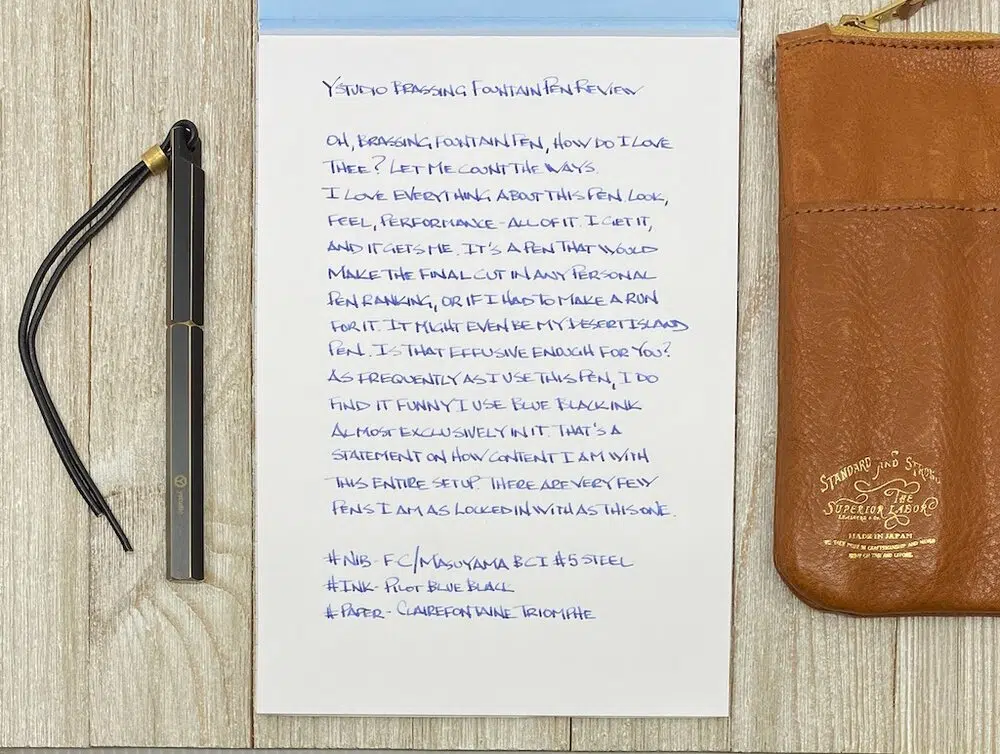 YSTUDIO BRASSING FOUNTAIN PEN REVIEW
OH, BRASSING FOUNTAIN PEN, HOW DO I LOVE
THEE? LET ME COUNT THE WAYS.
I LOVE EVERYTHING ABOUT THIS PEN. LOOK,
FEEL, PERFORMANCE - ALL OF IT. I GET IT,
AND IT GETS ME. IT'S A PEN THAT WOULD
MAKE THE FINAL CUT IN ANY PERSONAL
PEN RANKING, OR IF I HAD TO MAKE A RUN
FOR IT. IT MIGHT EVEN BE MY DESERT ISLAND
PEN. IS THAT EFFUSIVE ENOUGH FOR YOU?
AS FREQUENTLY AS I USE THIS PEN, I DO
FIND IT FUNNY I USE BLUE BLACK INK
ALMOST EXCLUSIVELY IN IT. THAT'S A
STATEMENT ON HOW CONTENT I AM WITH
THIS ENTIRE SETUP. THERE ARE VERY FEW
PENS I AM AS LOCKED IN WITH AS THIS ONE.
#NIB - F-C/MASUYAMA BCI #5 STEEL
#INK - PILOT BLUE BLACK
#PAPER - CLAIREFONTAINE TRIOMPHE
ystudio
STANDARD AND STRONG
THE
SUPERIOR LABOR
MADE IN JAPAN